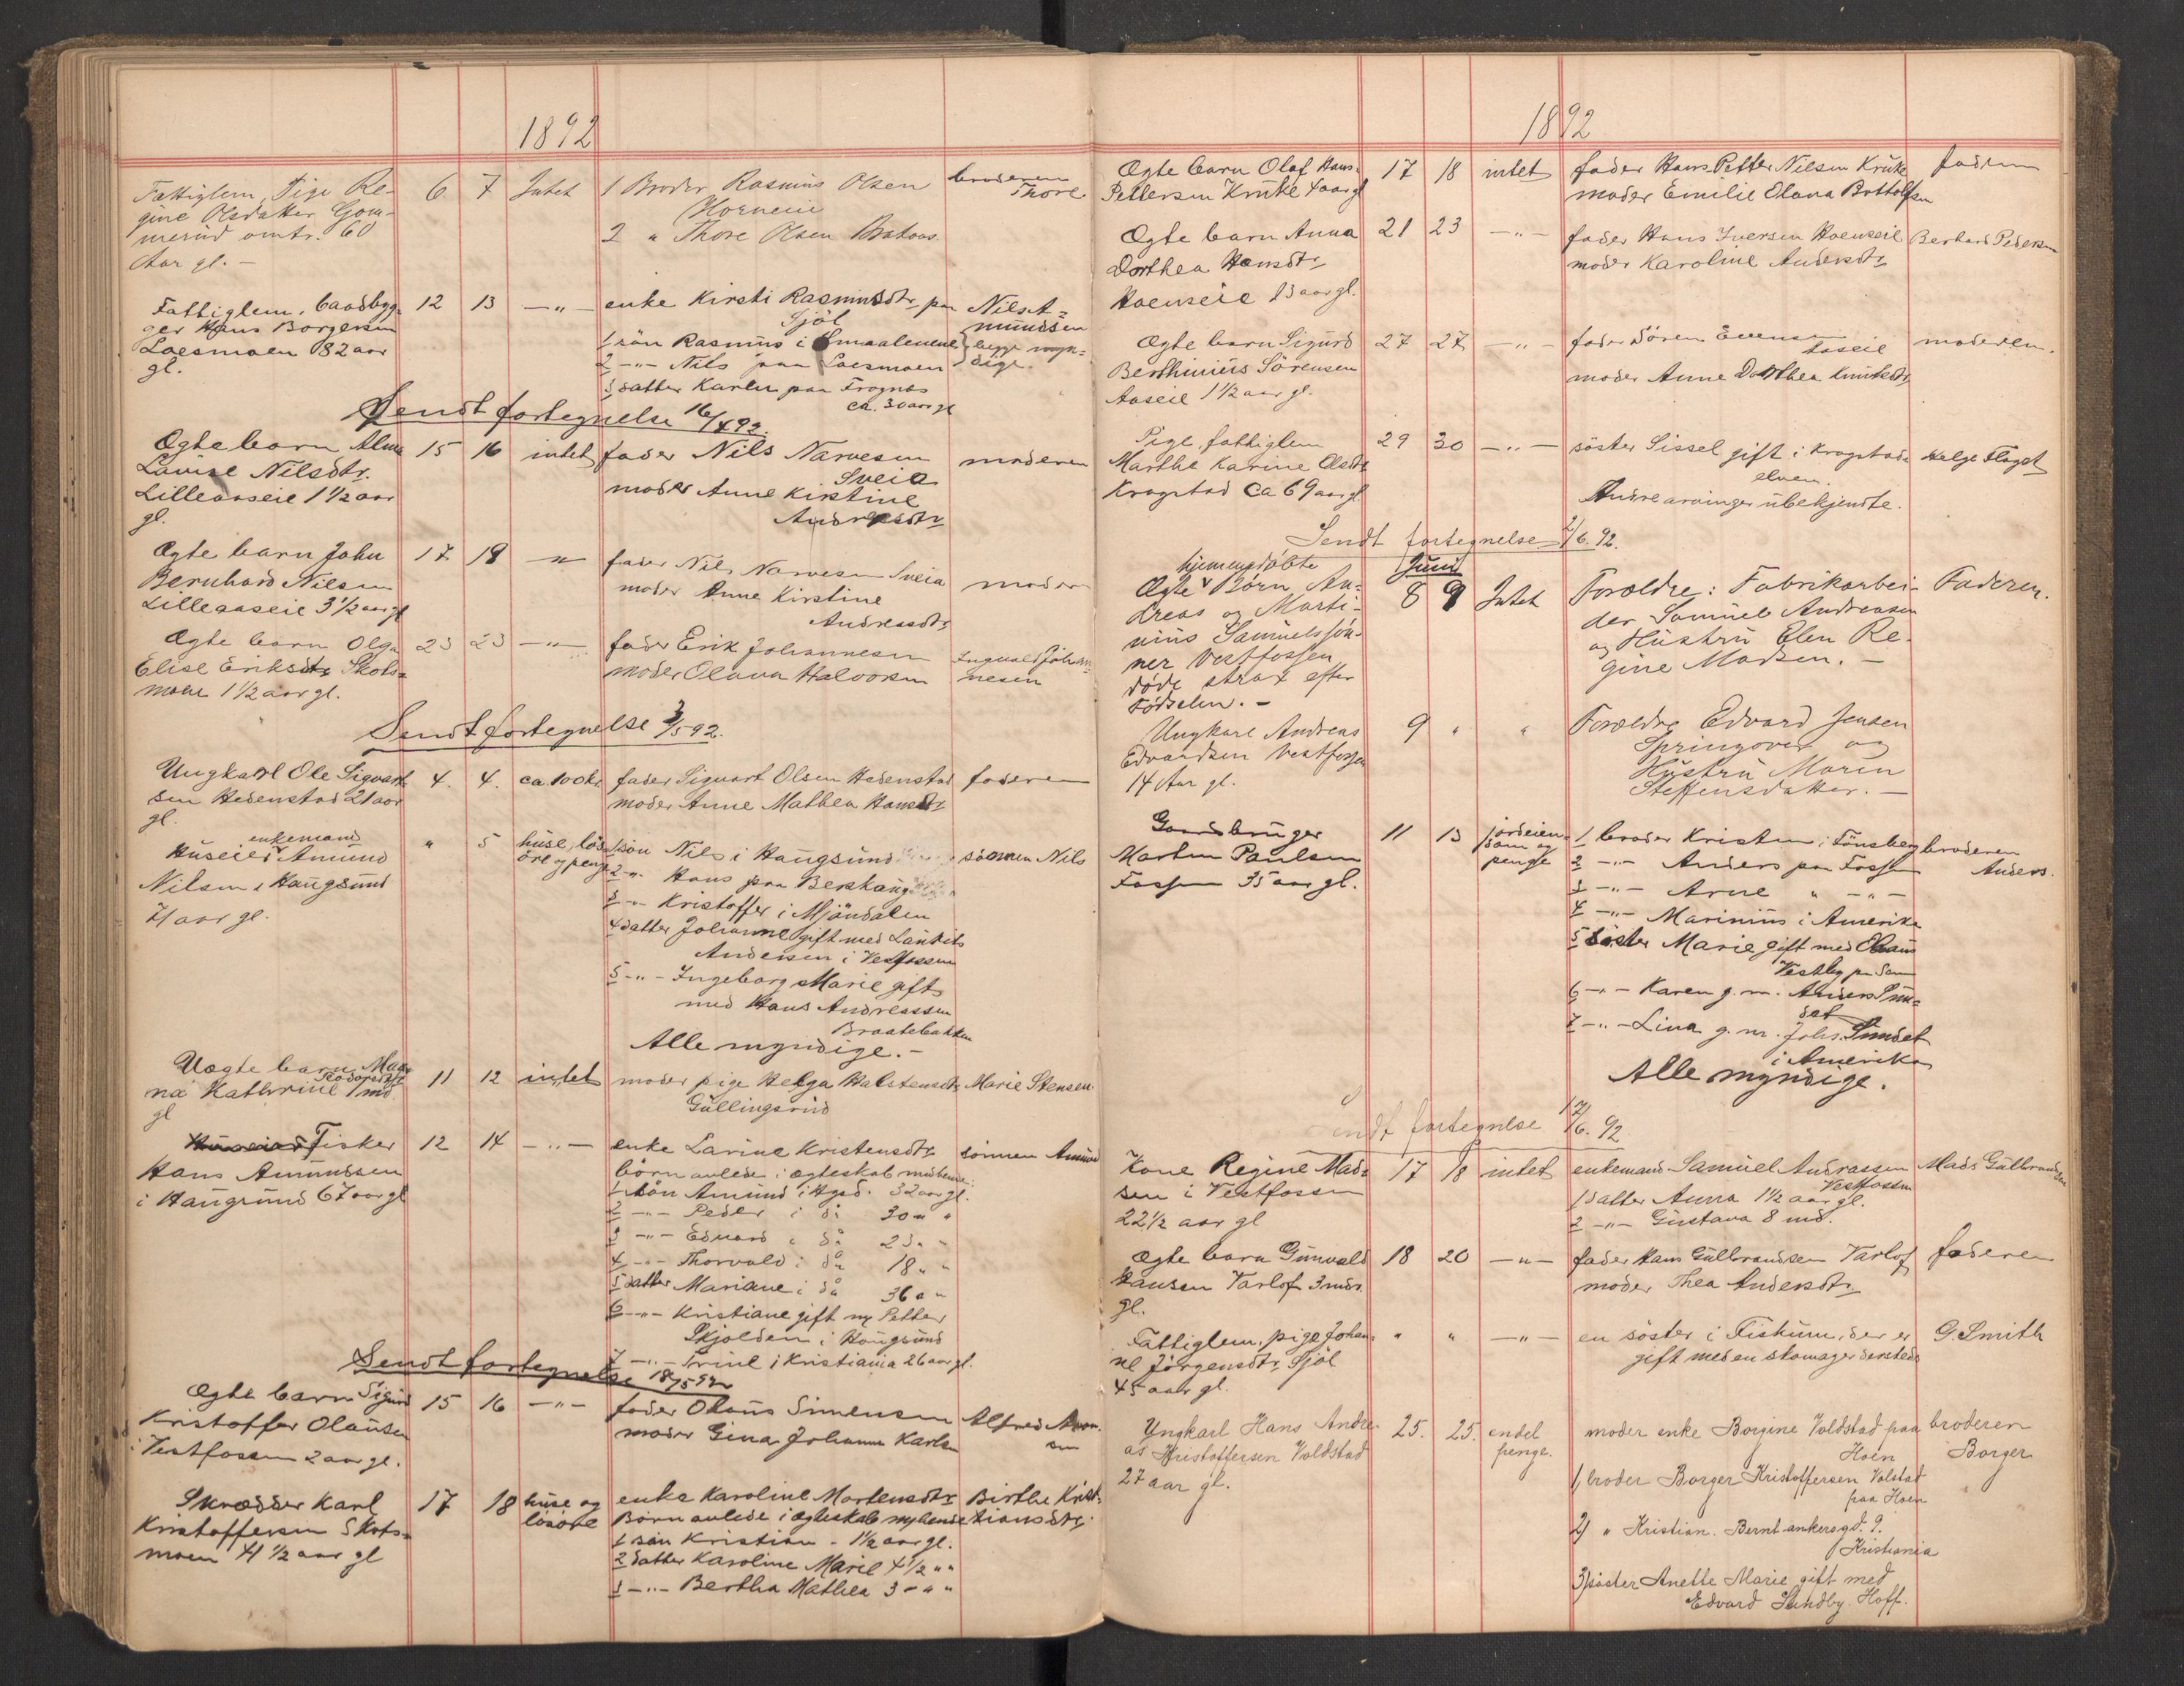 1892
Fattiglem, Pige Re-
gine Olsdatter Gom-
merud omtr. 60
Aar gl. -
6 7 Intet
1 Broder Rasmus Olsen
Horneeie
2 " Thore Olsen
broderen
Thore.
Fattiglem, baadbyg-
ger Hans Borgersen
Loesmoen 82 aar
gl.
12 13 -"-
enke Kirsti Rasmusdtr paa
Sjöl
1 sön Rasmus i Smaalenene
2 -"- Nils paa Loesmoen
3 datter Karen paa Frognes
ca. 30 aar gl
Nils A=
mundsen
begge myn=
dige.
Sendt fortegnelse 16/4 92.
Ægte barn Alma
Lovise Nilsdtr.
Lilleaaseie 1 1/2 aar
gl.
15 16 intet
fader Nils Narvesen
Sveia
moder Anne Kirstine
Andresdtr
moderen
Ægte barn John
Bernhard Nilsen
Lilleaaseie 3 1/2 aar gl
17. 18 -"-
fader Nils Narvesen Sveia
moder Anne Kirstine
Andresdtr
moder
Ægte barn Olga
Elise Eriksdtr Skots=
moen 1 1/2 aar gl.
23 23 -"-
fader Erik Johannesen
moder Olava Halvorsen
Ingvald Johan=
nesen
Sendt fortegnelse 3/5 92.
Ungkarl Ole Sigvart
sen Hedenstad 21 aar
gl.
4. 4. ca. 100 kr.
fader Sigvart Olsen Hedenstad
moder Anne Mathea Hansdtr
faderen
enkemand
Huseier Amund
Nilsen i Haugsund
71 aar gl.
" 5 huse, lös
öre og penge
1 sön Nils i Haugsund
2 -"- Hans paa Bershaug
3 -"- Kristoffer i Mjöndalen
4 datter Johanne gift med Laurits
Andersen i Vestfossen
5 -"- Ingeborg Marie gift
med Hans Andreassen
Braatebakken
Alle myndige. -
sönnen Nils
Uægte barn Mag=
na Kathrine 1 md
gl
11 12 intet
moder pige Helga Halstensdtr
Gullingsrud
Marie Stensen.
Fisker
Hans Amundsen
i Haugsund 67 aar gl
12 14 -"-
enke Larine Kristensdtr
börn avlede i ægteskab m/denne:
1 sön Amund i Hgsd. 32 aar gl.
2 -"- Peder i do 30 " "
3 -"- Edvard i do 23 " "
4 -"- Thorvald i do 18 " "
5 datter Mariane i do 36 " "
6 -"- Kristiane gift m/ Petter
Skjolden i Haugsund
7 -"- Trine i Kristiania 26 aar gl.
sönnen Amund
Sendt fortegnelse 18/5 92
Ægte barn Sigurd
Kristoffer Olausen
i Vestfossen 2 aar gl.
15 16 -"-
fader Olaus Simensen
moder Gina Johanne Karlsen
Alfred
Skrædder Karl
Kristoffersen Skots=
moen 41 1/2 aar gl
17 18 huse og
lösöre
enke Karoline Mortensdtr
Börn avlede i ægteskab m/denne
1 sön Kristian - 1 1/2 aar gl.
2 datter Karoline Marie 4 1/2 " "
3 -"- Bertha Mathea 3 - " "
Birthe Krist=
tiansdtr.
1892
Ægte barn Olaf Hans
Pettersen Kruke 1 aar gl
17 18 intet
fader Hans Petter Nilsen Kruke
moder Emilie Olava Bottolfsen
faderen
Ægte barn Anna
Dorthea Hansdtr
Hoenseie 13 aar gl.
21 23 -"-
fader Hans Iversen Hoenseie
moder Karoline Andersdtr
Berhard Pedersen
Ægte barn Sigurd
Berthinius Sörensen
Aaseie 1 1/2 aar gl.
27 27 -"-
fader Sören Evensen
Aaseie
moder Anne Dorthea Knutsdtr
moderen.
Pige, fattiglem
Marthe Karine Olsdtr
Krogstad ca 69 aar gl
29 30 -"-
söster Sissel gift i Krogstad
elven.
Andre arvinger ubekjendte.
Helge Flaget
Sendt fortegnelse 2/6. 92.
Juni
hjemmedöbte
Ægte Börn An-
dreas og Marti-
nius Samuelssön-
ner Vestfossen
döde strax efter
Födselen. -
8 9 Intet
Forældre: Fabrikarbei-
der Samuel Andreasen
og Hustru Elen Re-
gine Madsen. -
Faderen.
Ungkarl Andreas
Edvardsen Vestfossen
14 Aar gl.
9 " "
Forældre Edvard Jensen
Springover og
Hustru Maren
Steffensdatter. -
Gaardbruger
Martin Paulsen
Fossen 35 aar gl.
11 13 jordeien=
dom og
penge
1 broder Kristen i Tönsberg
2 -"- Anders paa Fossen
3 -"- Arne " -"-
4 -"- Marinius i Amerika
5 söster Marie gift med Olaus
Vestby paa Sam
6 -"- Karen g. m. Anders Sun=
det
7 -"- Lina g. m. Johs. Sundet
i Amerika
Alle myndige.
broderen
Anders.
Sendt fortegnelse 17/6. 92
Kone Regine Mad=
sen i Vestfossen
22 1/2 aar gl
17 18 intet
enkemand Samuel Andrassen
Vestfossen
1 datter Anna 1 1/2 aar gl.
2 -"- Gustava 8 md.
Mads Gulbrandsen
Ægte barn Gunvald
Hansen Varlof 3 mdr.
gl.
18 20 -"-
fader Hans Gulbrandsen Varlof
moder Thea Andersdtr
faderen
Fattiglem, pige Johan=
ne Jörgensdtr Sjöl
45 aar gl.
" " -"-
en söster i Fiskum, der er
gift med en skomager dersteds
G. Smith
Ungkarl Hans Andre
as Kristoffersen Voldstad
27 aar gl.
25. 25. endel
penge.
moder enke Borgine Voldstad paa
Hoen
1, broder Borger Kristoffersen Volstad
paa Hoen
2) " Kristian. Bernt ankersgd. 9.
Kristiania
3) söster Anette Marie gift med
Edvard Sundby. Hoff.
broderen
Borger